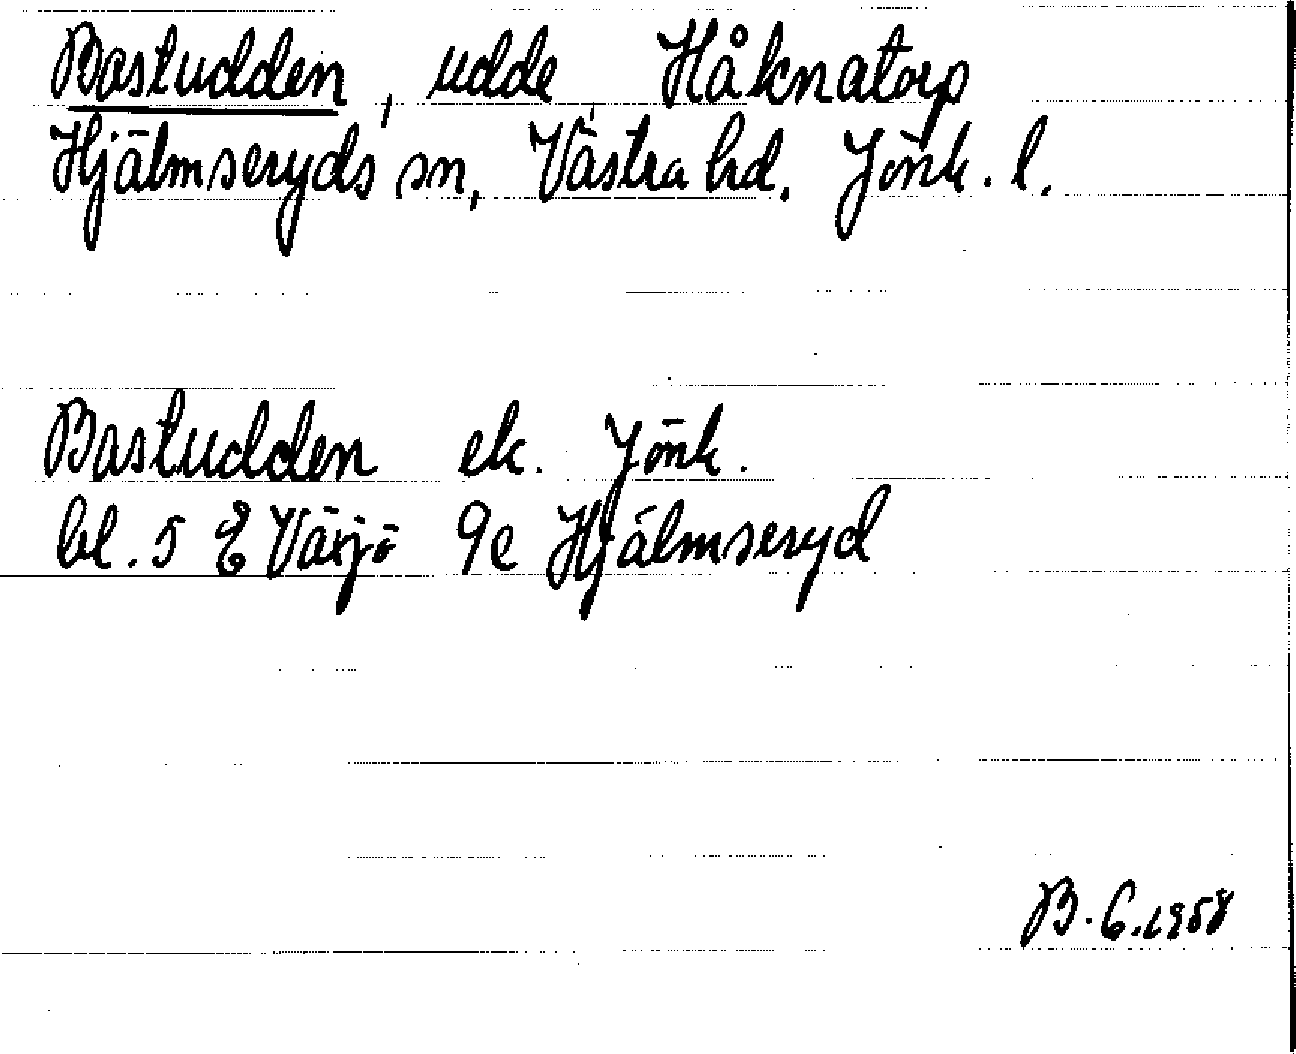 Bastudden, udde, Håknatorp
Hjälmseryds sn, Västra hd. Jönk. l.
Bastudden ek. Jönk.
bl. 5 E Växjö 9e Hjälmseryd
B. G. 1958